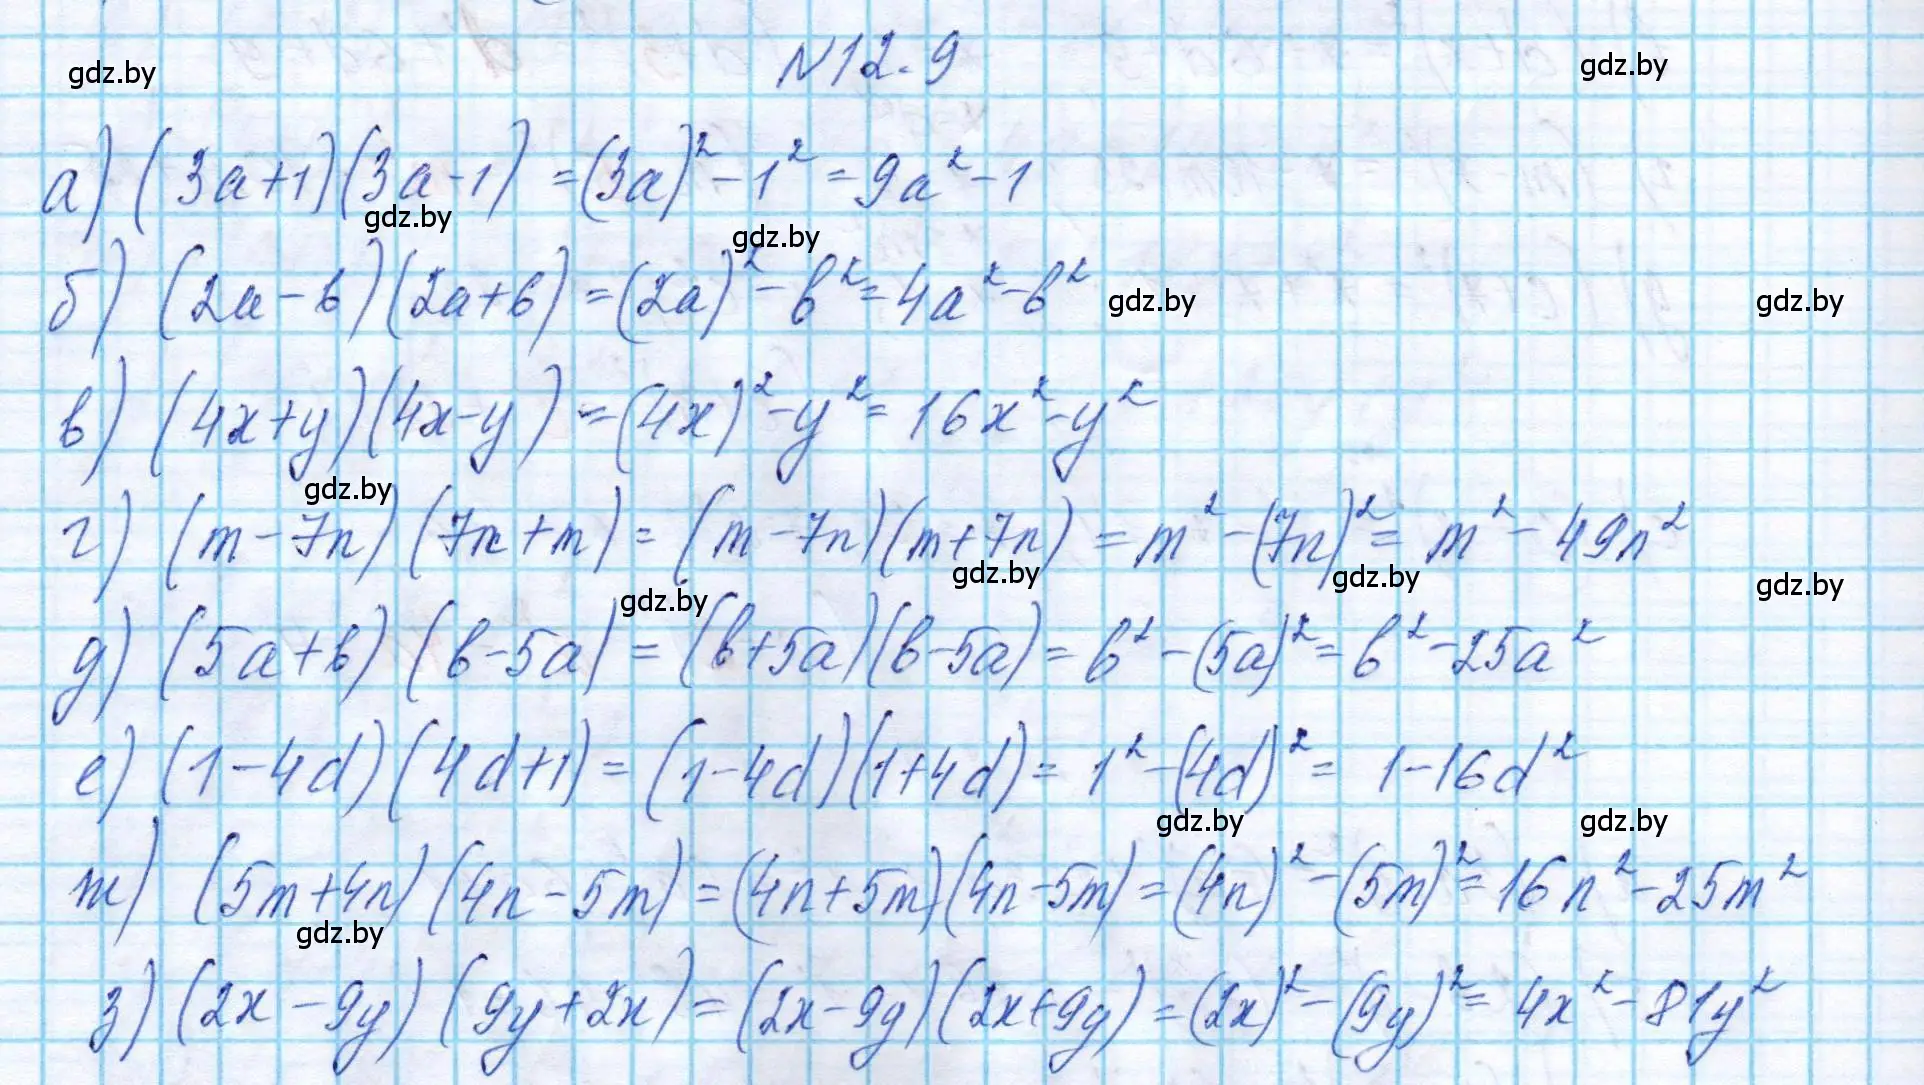 N12.9
gdz.by
gdz.by
а) (3a+1)(3a-1) = (3a)² - 1² = 9a² - 1
gdz.by
gdz.by
б) (2a-b)(2a+b) = (2a)² - b² = 4a² - b²
gdz.by
gdz.by
в) (4x+y)(4x-y) = (4x)² - y² = 16x² - y²
gdz.by
г) (m-7n)(7n+m) = (m-7n)(m+7n) = m² - (7n)² = m² - 49n²
gdz.by
gdz.by
gdz.by
gdz.by
д) (5a+b)(b-5a) = (b+5a)(b-5a) = b² - (5a)² = b² - 25a²
е) (1-4d)(4d+1) = (1-4d)(1+4d) = 1² - (4d)² = 1 - 16d²
gdz.by
gdz.by
ж) (5m+4n)(4n-5m) = (4n+5m)(4n-5m) = (4n)² - (5m)² = 16n² - 25m²
gdz.by
з) (2x-9y)(9y+2x) = (2x-9y)(2x+9y) = (2x)² - (9y)² = 4x² - 81y²